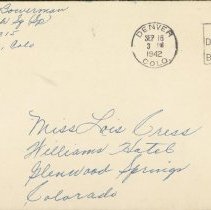 Bowerman
Sq
Colo
DENVER
SEP 16
3 PM
1942
COLO.
D
B
Miss Lois Cress
Williams Hotel
Glenwood Springs
Colorado